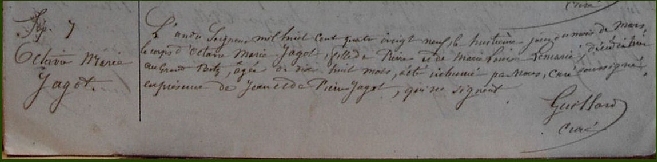 Curé
Sép. 7
Octavie Marie
Jagot.
L'an du Seigneur, mil huit cent quatre vingt neuf, le huitième jour du mois de mars,
le corps d'Octavie Marie Jagot, fille de Pierre et de Marie Louise décédée hier
au Grand agée de dix huit mois, a été inhumé par Nous, Curé soussigné,
en présence de Jean et de Pierre Jagot, qui ne signent.
Guellard
Curé